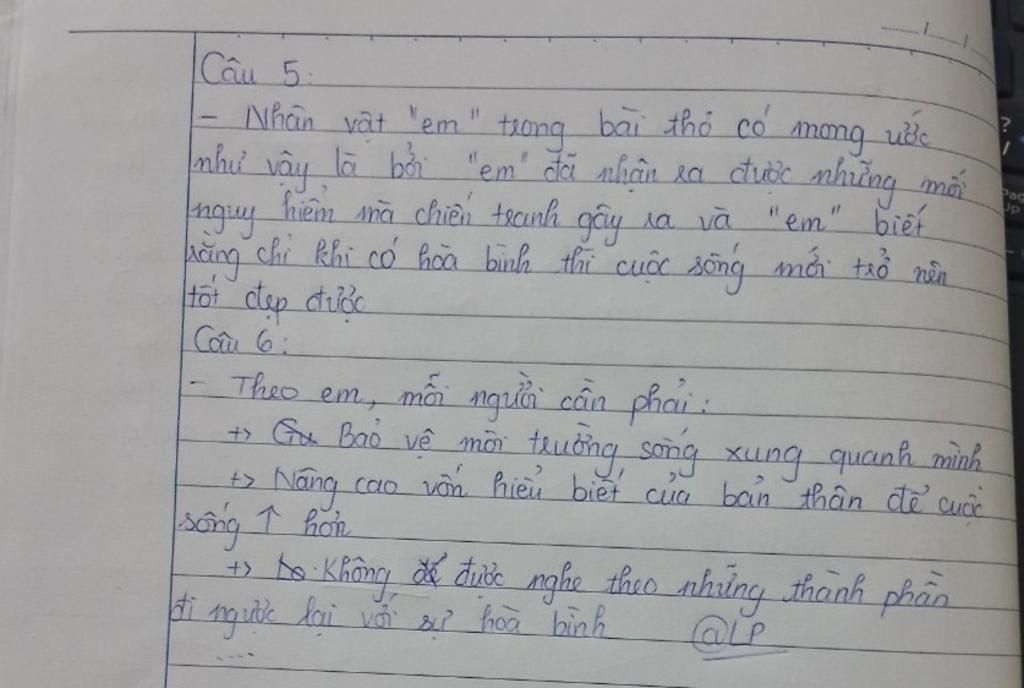 Câu 5:
- Nhân vật "em" trong bài thơ có mong ước
như vậy là bởi "em" đã nhận ra được những mối
nguy hiểm mà chiến tranh gây ra và "em" biết
rằng chỉ khi có hòa bình thì cuộc sống mới trở nên
tốt đẹp được
Câu 6:
- Theo em, mỗi người cần phải:
+> Bảo vệ môi trường sống xung quanh mình
+> Nâng cao vốn hiểu biết của bản thân để cuộc
sống ↑ hơn
+> Không được nghe theo những thành phần
đi ngược lại với sự hoà bình @LP
....